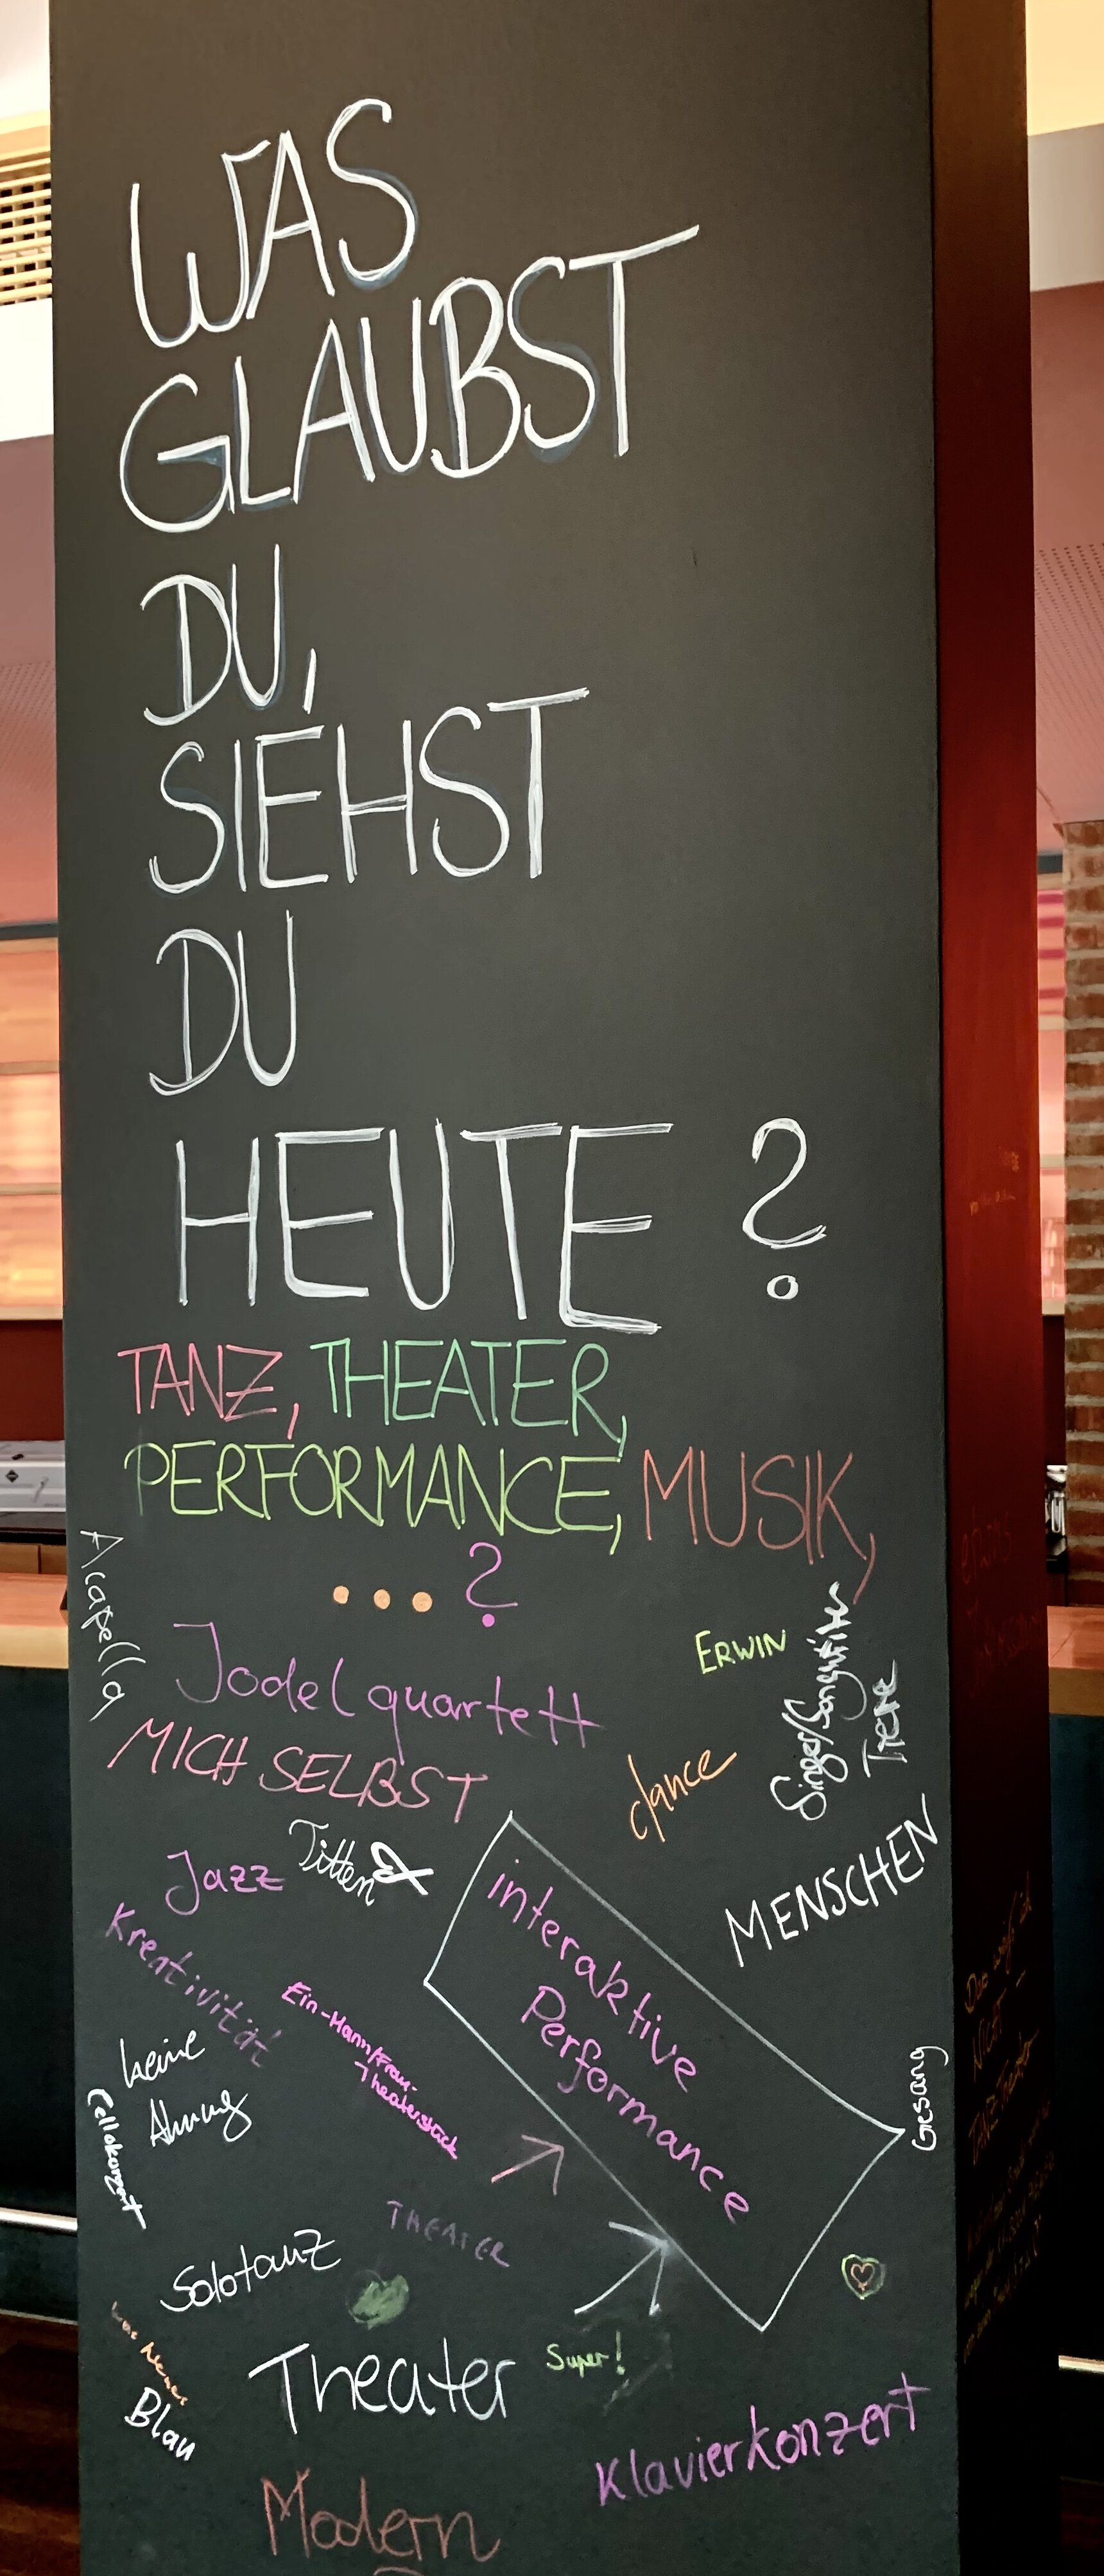 WAS
GLAUBST
DU,
SIEHST
DU
HEUTE?
TANZ, THEATER,
PERFORMANCE, MUSIK,
... ?
Acapella
Jodelquartett
ERWIN
Singer/Songwriter
Tiere
MICH SELBST
dance
Jazz
Titten
MENSCHEN
interaktive
Performance
Kreativität
Ein-Mann/Frau-
Theaterstück
keine
Ahnung
Cellokonzert
Gesang
THEATER
Solotanz
Theater
Super!
Blau
Klavierkonzert
Modern